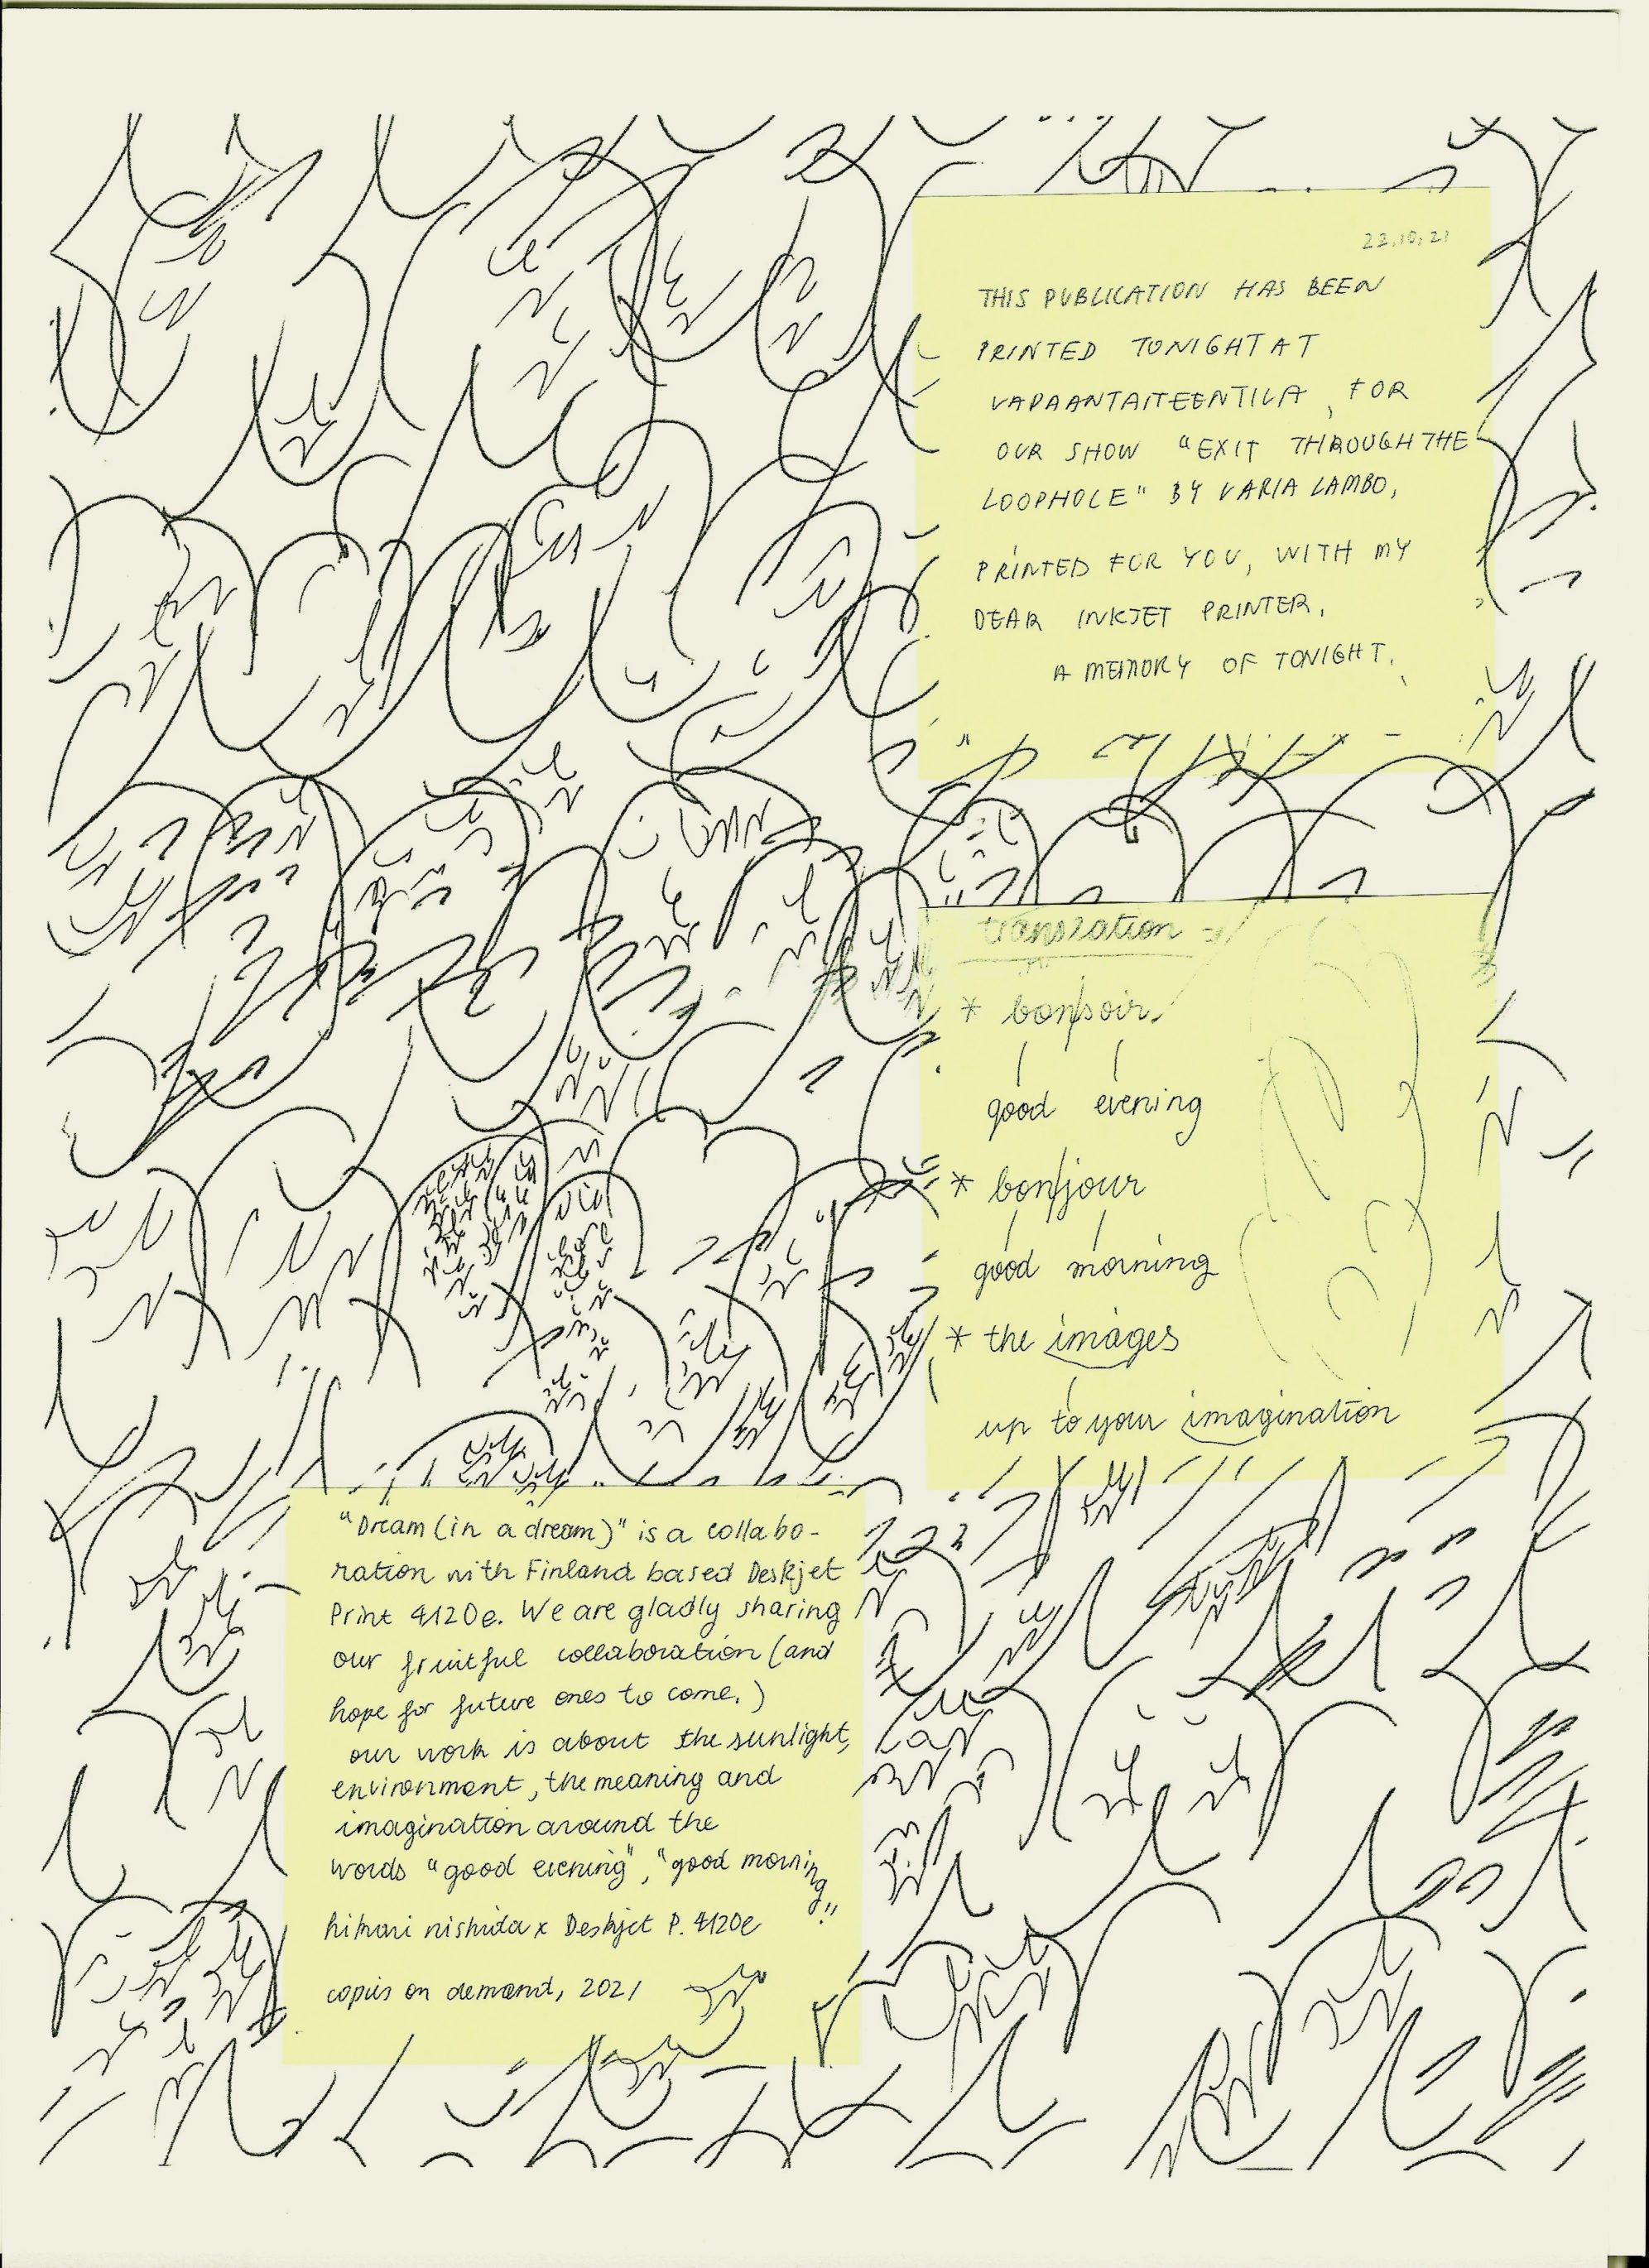 22.10.21
THIS PUBLICATION HAS BEEN
PRINTED TONIGHT AT
VAPAANTAITEENTILA, FOR
OUR SHOW "EXIT THROUGH THE
LOOPHOLE" BY VARIA LAMBO,
PRINTED FOR YOU, WITH MY
DEAR INKJET PRINTER.
A MEMORY OF TONIGHT.
translation
* bon/soir
good evening
* bon/jour
good morning
* the images
up to your imagination
"Dream (in a dream)" is a collabo-
ration with Finland based Deskjet
Print 4120e. We are gladly sharing
our fruitful collaboration (and
hope for future ones to come.)
our work is about the sunlight,
environment, the meaning and
imagination around the
words "good evening", "good morning"
hikari nishida x Deskjet P. 4120e
copies on demand, 2021